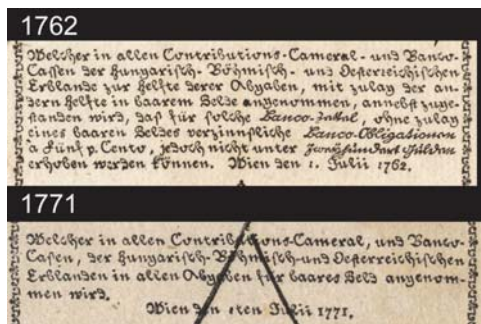 1762
Welcher in allen Contributions-Cameral- und Banco-
Cassen der Hungarisch- Böhmisch- und Oesterreichischen
Erblande zur Helfte derer Abgaben, mit zulag der an-
dern Helfte in baarem Gelde angenommen, annebst zuge-
standen wird, daß für solche Banco-Zettel, ohne zulag
eines baaren Geldes verzinnsliche Banco-Obligationen
a Fünf p. Cento, jedoch nicht unter Zweyhundert Gulden
erhoben werden können. Wien den 1. Julii 1762.
1771
Welcher in allen Contributions-Cameral, und Banco-
Cassen, der Hungarisch-Böhmisch-und Oesterreichischen
Erblanden in allen Abgaben für baares Geld angenom-
men wird.
Wien den 1ten Julii 1771.